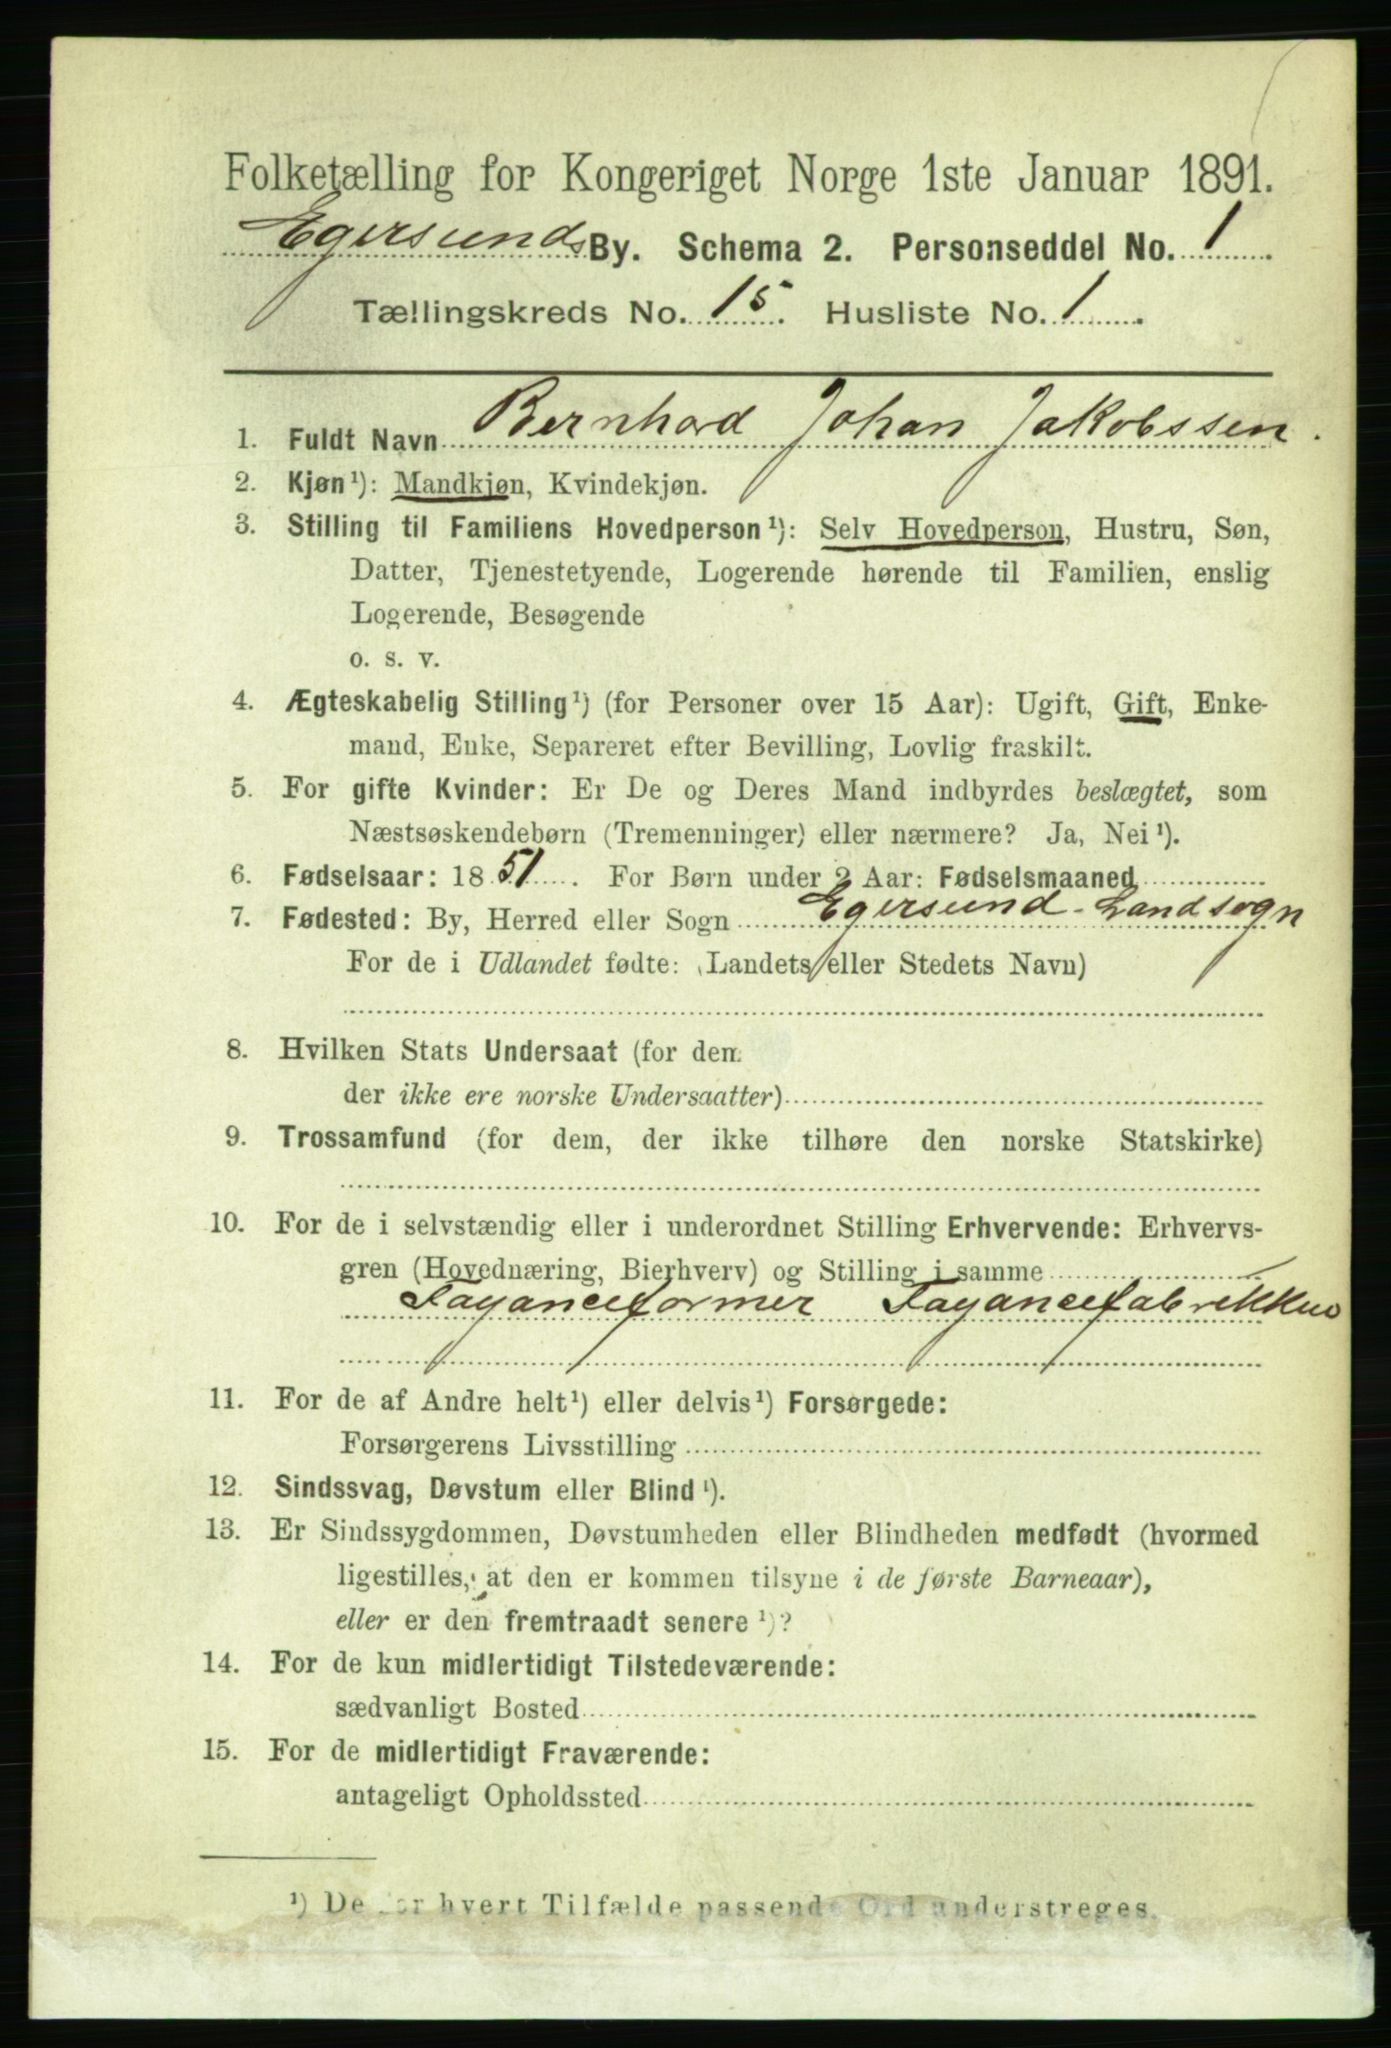 Folketælling for Kongeriget Norge 1ste Januar 1891.
Egersunds By. Schema 2. Personseddel No. 1
Tællingskreds No. 15. Husliste No. 1.
1. Fuldt Navn Bernhard Johan Jakobssen.
2. Kjøn¹): Mandkjøn, Kvindekjøn.
3. Stilling til Familiens Hovedperson¹): Selv Hovedperson, Hustru, Søn,
Datter, Tjenestetyende, Logerende hørende til Familien, enslig
Logerende, Besøgende
o. s. v.
4. Ægteskabelig Stilling¹) (for Personer over 15 Aar): Ugift, Gift, Enke-
mand, Enke, Separeret efter Bevilling, Lovlig fraskilt.
5. For gifte Kvinder: Er De og Deres Mand indbyrdes beslægtet, som
Næstsøskendebørn (Tremenninger) eller nærmere? Ja, Nei¹).
6. Fødselsaar: 1851. For Børn under 2 Aar: Fødselsmaaned
7. Fødested: By, Herred eller Sogn Egersund-Landsogn
For de i Udlandet fødte: (Landets eller Stedets Navn)
8. Hvilken Stats Undersaat (for dem
der ikke ere norske Undersaatter)
9. Trossamfund (for dem, der ikke tilhøre den norske Statskirke)
10. For de i selvstændig eller i underordnet Stilling Erhvervende: Erhvervs-
gren (Hovednæring, Bierhverv) og Stilling i samme
Fayanceformer Fayancefabrikken
11. For de af Andre helt¹) eller delvis¹) Forsørgede:
Forsørgerens Livsstilling
12. Sindssvag, Døvstum eller Blind¹).
13. Er Sindssygdommen, Døvstumheden eller Blindheden medfødt (hvormed
ligestilles, at den er kommen tilsyne i de første Barneaar),
eller er den fremtraadt senere¹)?
14. For de kun midlertidigt Tilstedeværende:
sædvanligt Bosted
15. For de midlertidigt Fraværende:
antageligt Opholdssted
¹) De for hvert Tilfælde passende Ord understreges.